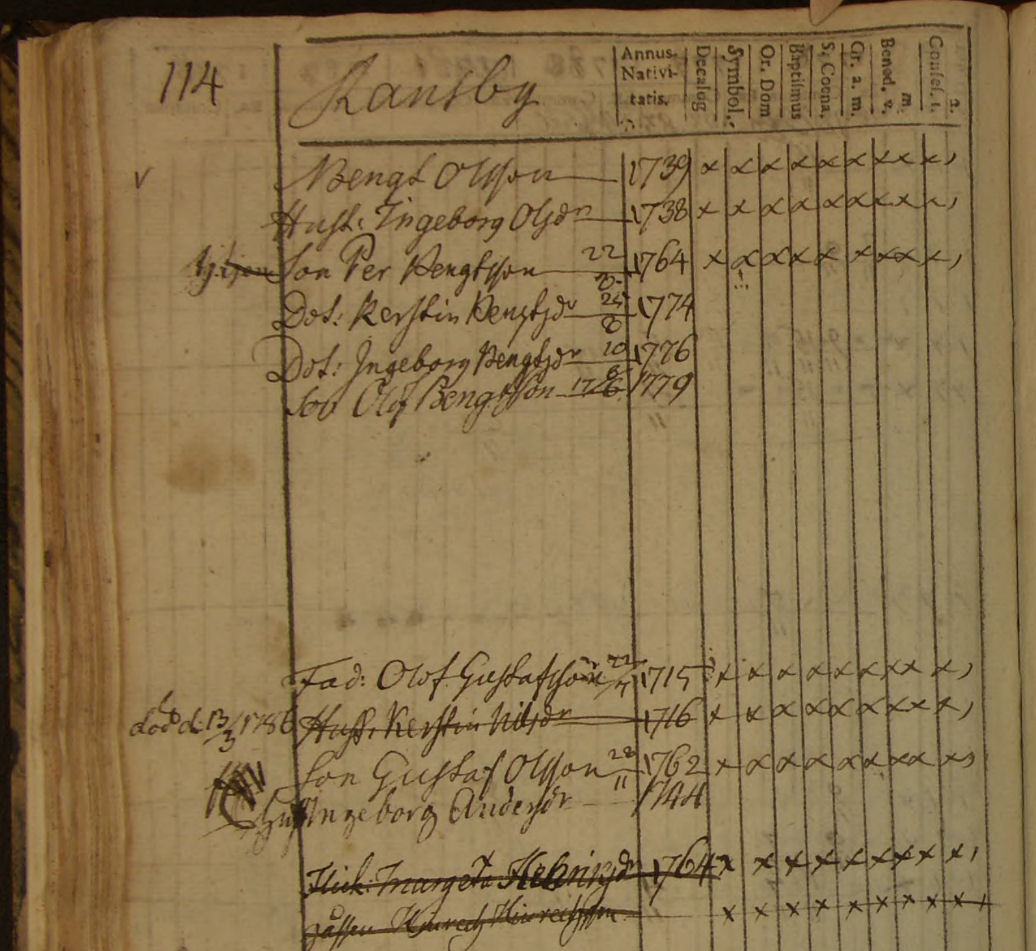 114
Ransby
Annus Nativi- tatis. Decalog Symbol. Or. Dom Baptismus S. Coena. Gr. a. m. Bened. v. m. Confes. 1. 2.
v Bengt Olsson 1739 x x x x x x x x x
Hust: Ingeborg Olsdr 1738 x x x x x x x x x
Son Per Bengtsson 22/8 1764 x x x x x x x x x
Dot: Kerstin Bengtsdr 25/8 1774
Dot: Ingeborg Bengtsdr 10/8 1776
Son Olof Bengtsson 17/6 1779
Fad: Olof Gustafsson 1715 x x x x x x x x x
död d. 13/3 1786 Hust: Kerstin Nilsdr 1716 x x x x x x x x x
Son Gustaf Olsson 28/11 1762 x x x x x x x x x
Hust Ingeborg Andersdr 1744
Flick: Margeta Henricsdr 1764 x x x x x x x x x
Gåssen Hinrech Hinrechsson x x x x x x x x x